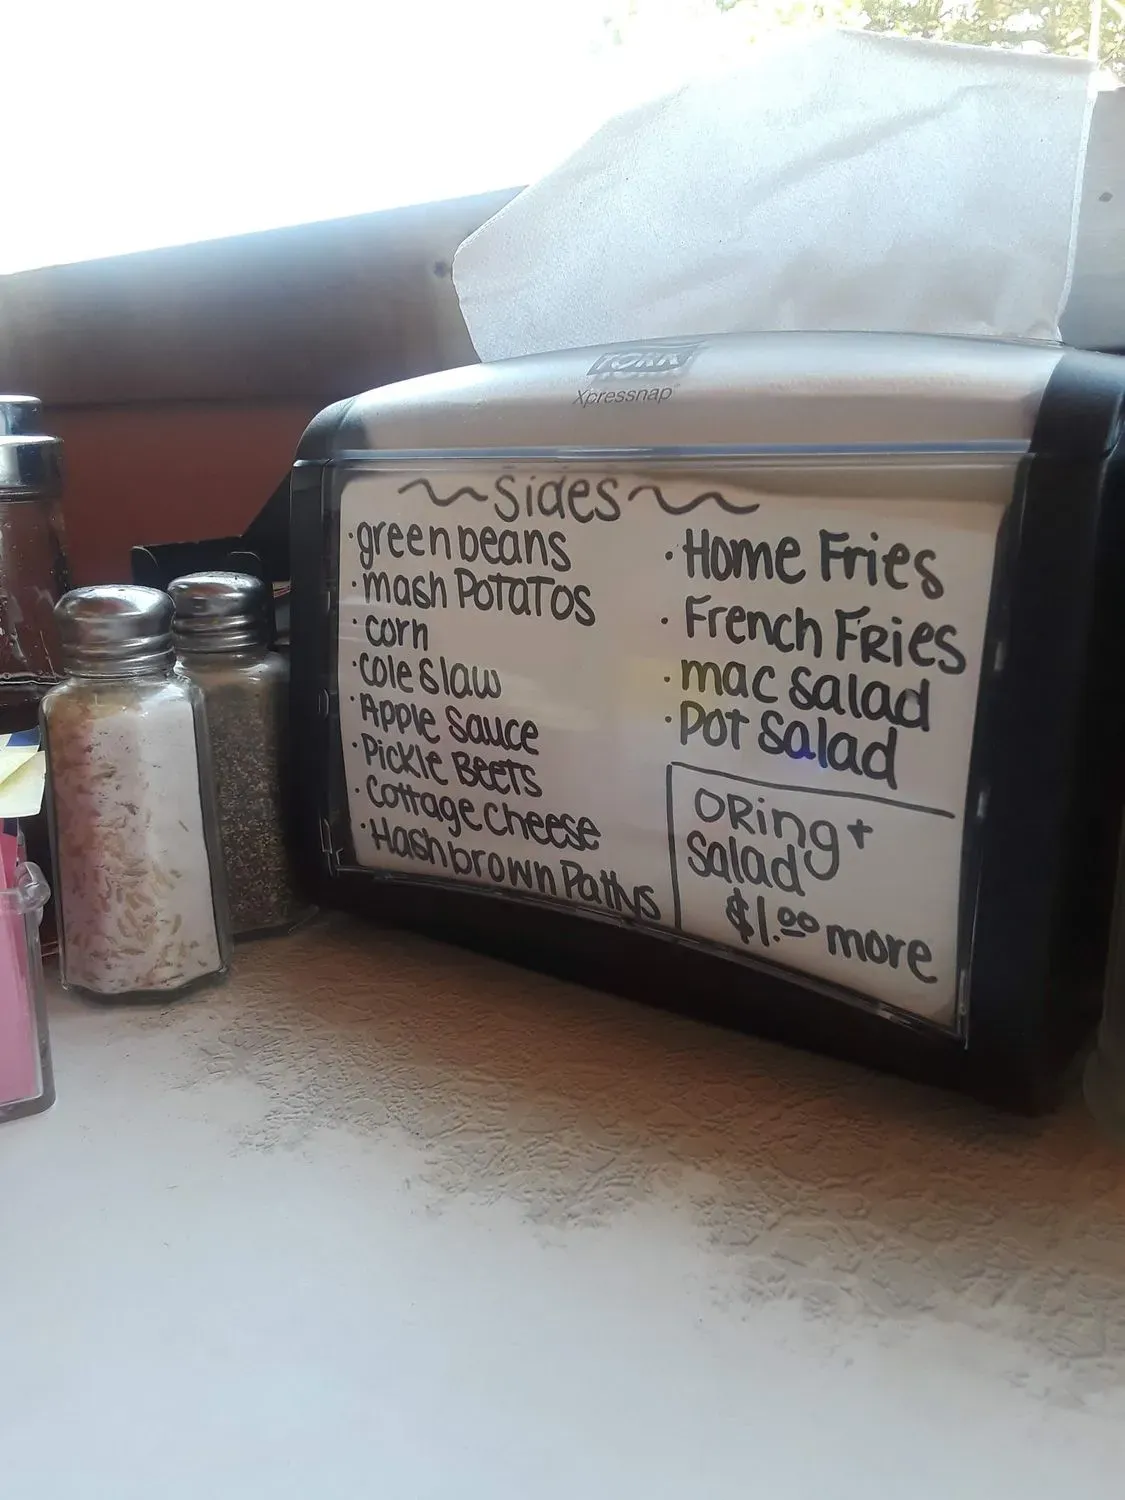 TORK
Xpressnap
~Sides~
·green beans
·mash POTATOS
·corn
·coleslaw
·Apple Sauce
·Pickle BEETS
·Cottage Cheese
·Hashbrown Pattys
·Home Fries
·French FRies
·mac salad
·Pot Salad
ORing+
Salad
$1.00 more